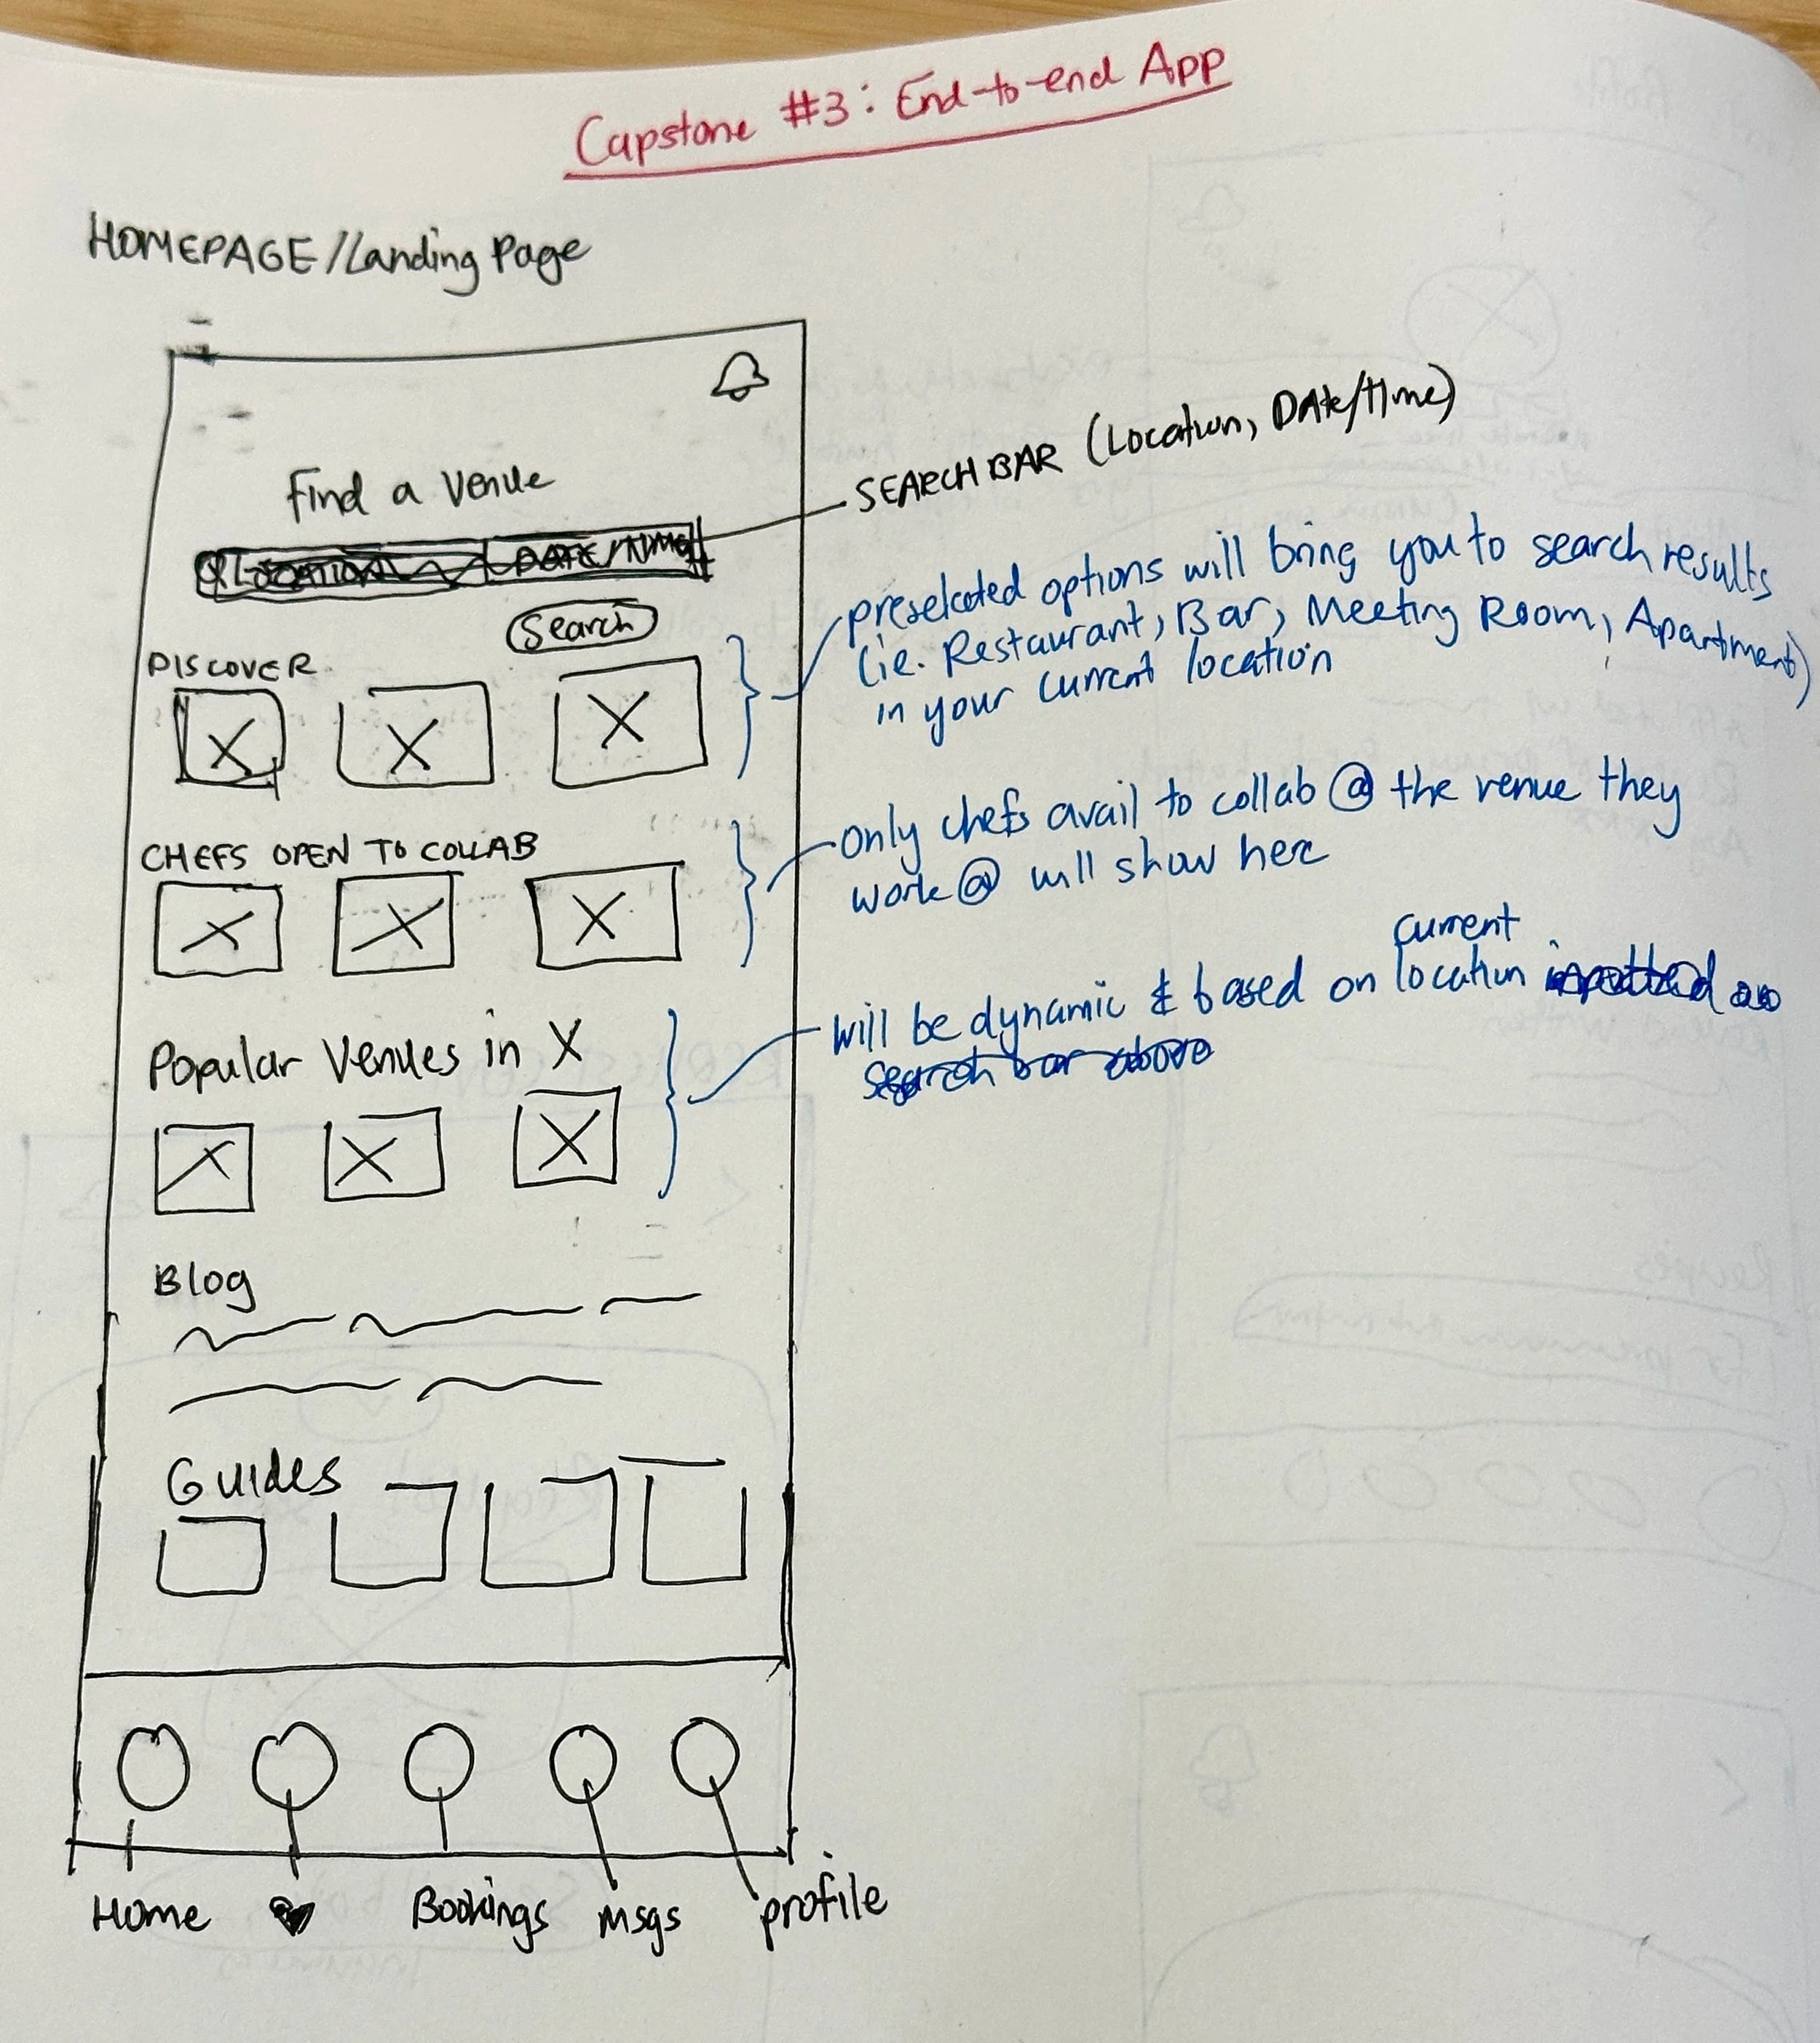 Capstone #3: End-to-end App
HOMEPAGE/Landing Page
Find a Venue
LOCATION DATE/TIME
SEARCH BAR (Location, DAte/time)
Search
DISCOVER
preselected options will bring you to search results
(ie. Restaurant, Bar, Meeting Room, Apartment)
in your current location
CHEFS OPEN TO COLLAB
only chefs avail to collab @ the venue they
work @ will show here
Popular Venues in X
current
will be dynamic & based on location
search bar above
Blog
Guides
Home
Bookings
msgs
profile